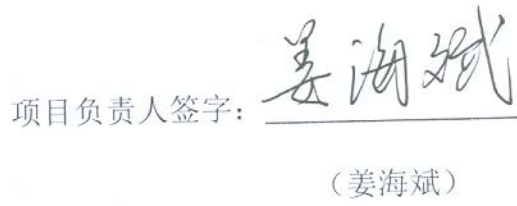 项目负责人签字：姜海斌
（姜海斌）